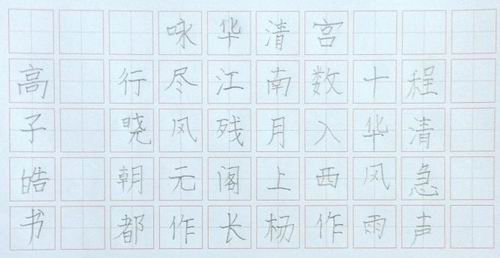 咏华清宫
行尽江南数十程
晓风残月入华清
朝元阁上西风急
都作长杨作雨声
高子皓书